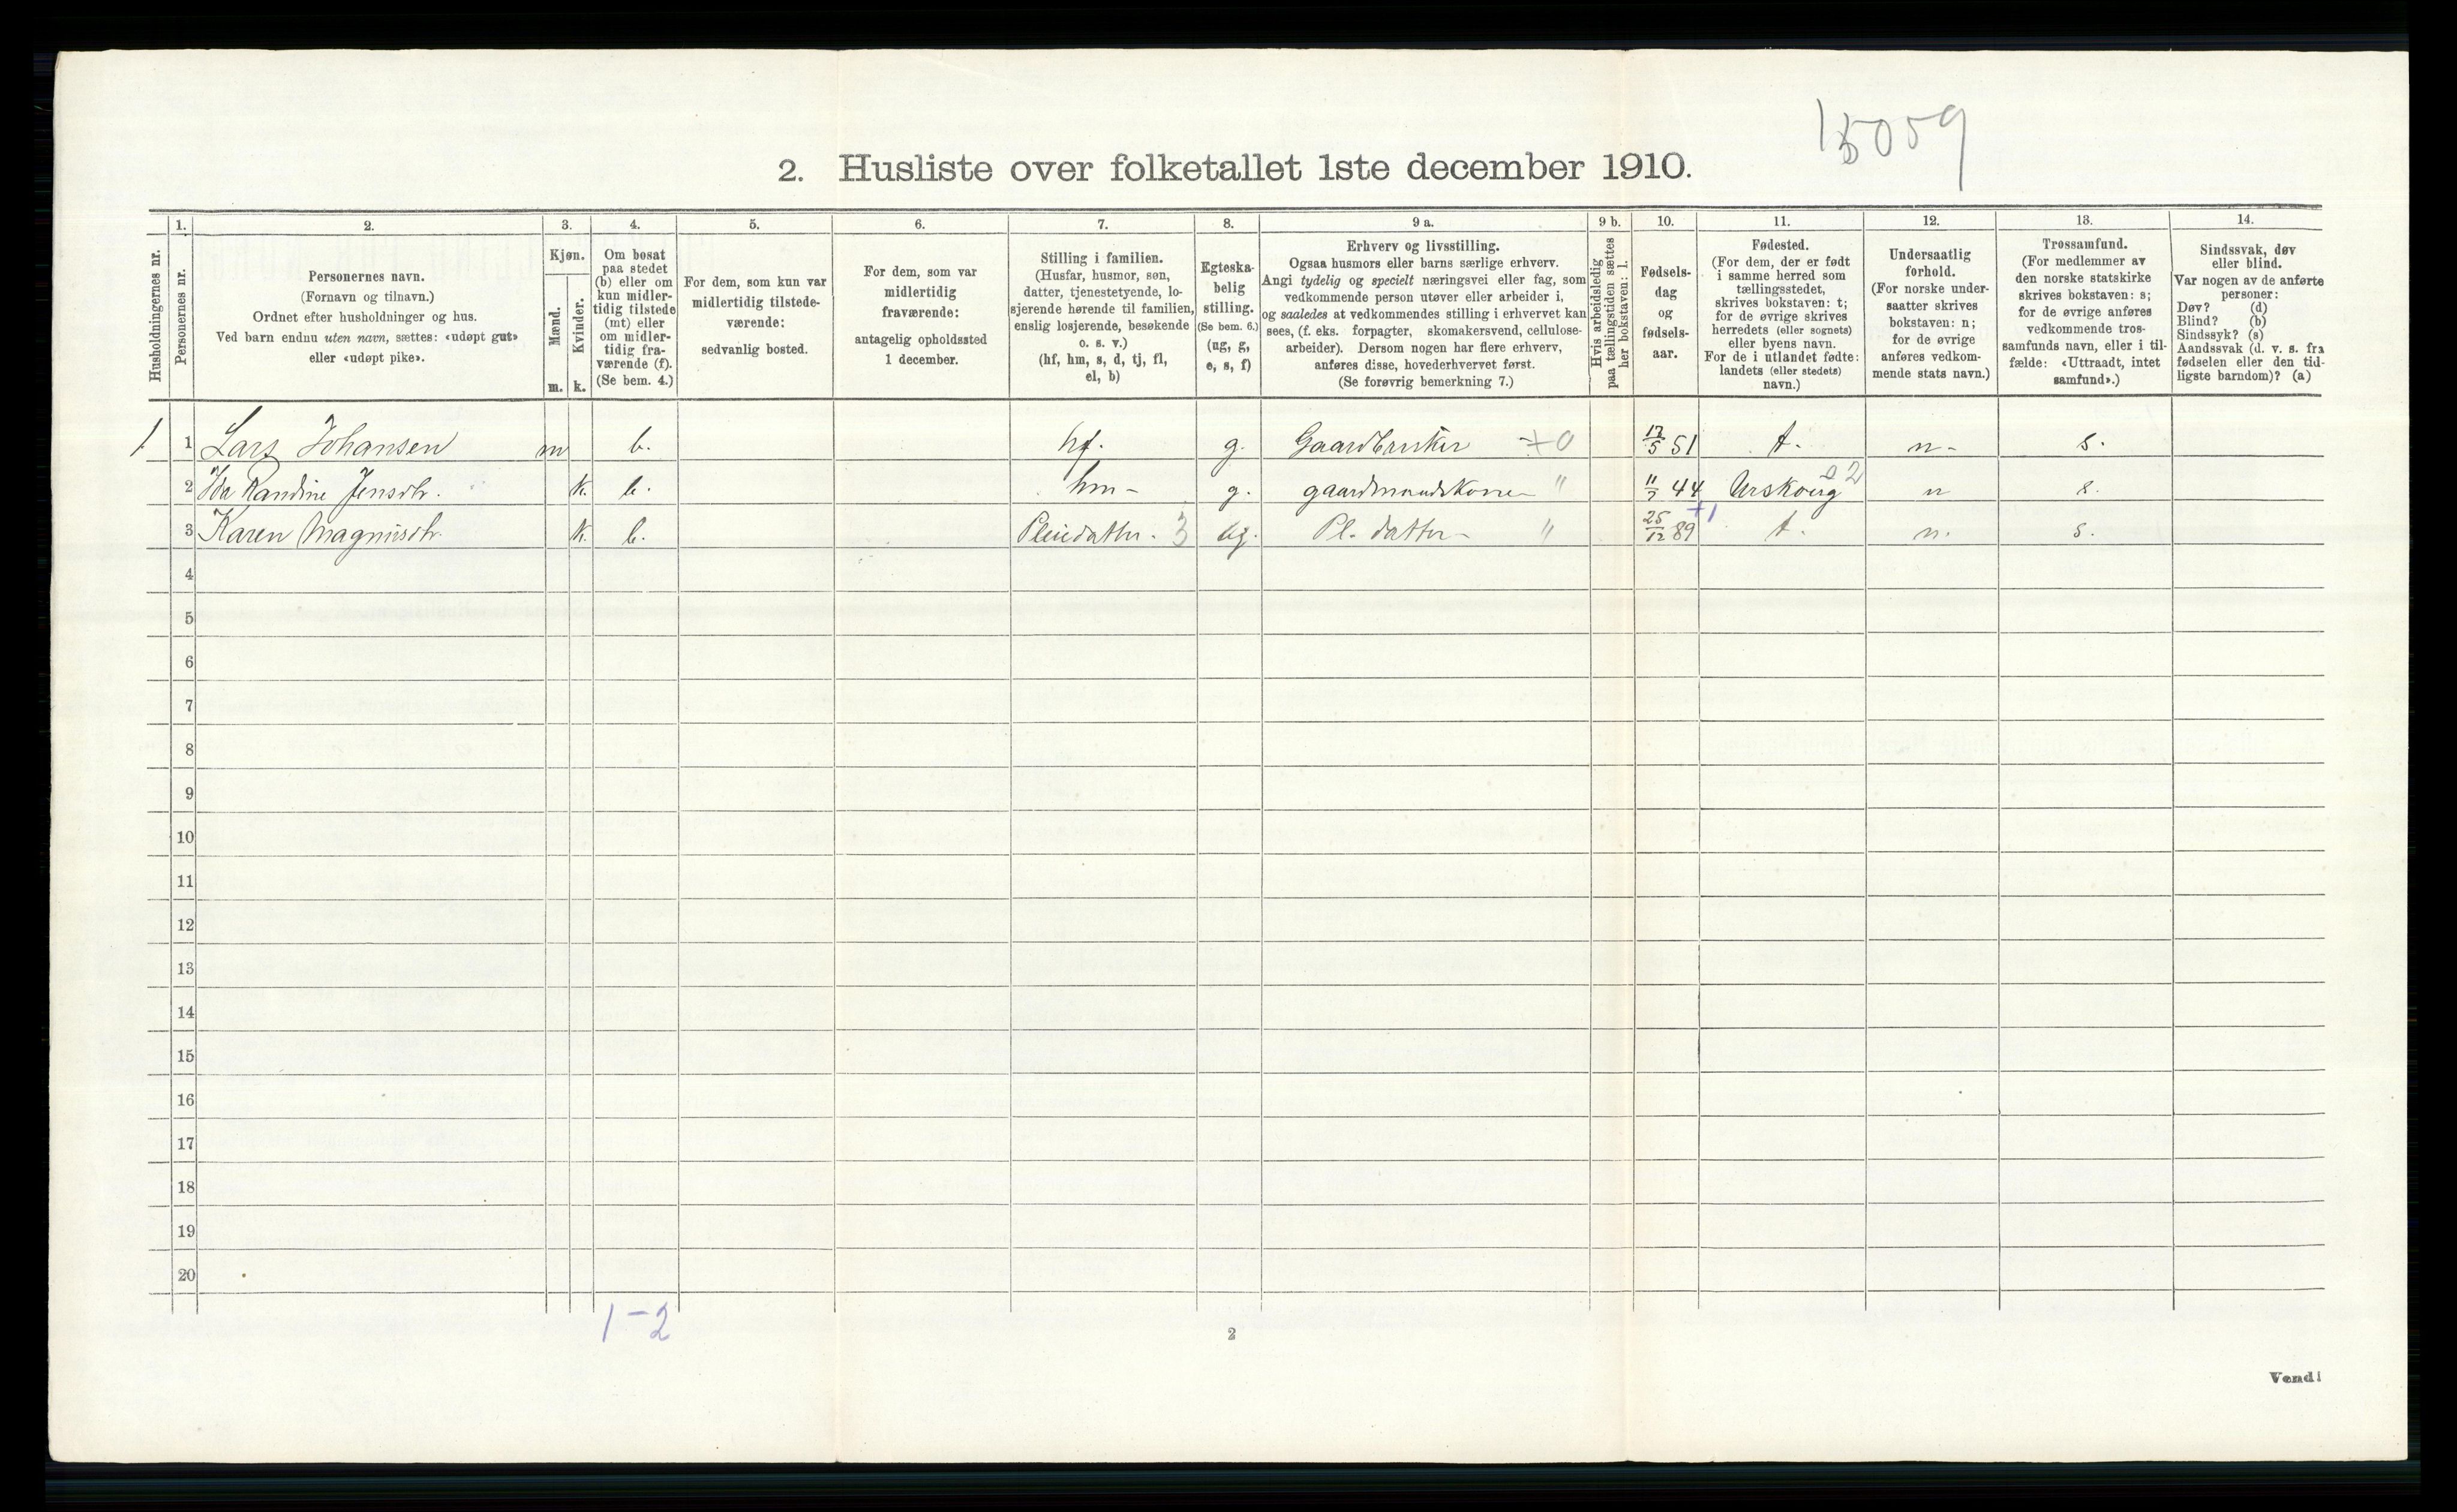 15059
2. Husliste over folketallet 1ste december 1910.
1. 2. 3. 4. 5. 6. 7. 8. 9 a. 9 b. 10. 11. 12. 13. 14.
Husholdningernes nr.
Personernes nr.
Personernes navn.
(Fornavn og tilnavn.)
Ordnet efter husholdninger og hus.
Ved barn endnu uten navn, sættes: «udøpt gut»
eller «udøpt pike».
Kjøn.
Mænd.
m.
Kvinder.
k.
Om bosat
paa stedet
(b) eller om
kun midler-
tidig tilstede
(mt) eller
om midler-
tidig fra-
værende (f).
(Se bem. 4.)
For dem, som kun var
midlertidig tilstede-
værende:
sedvanlig bosted.
For dem, som var
midlertidig
fraværende:
antagelig opholdssted
1 december.
Stilling i familien.
(Husfar, husmor, søn,
datter, tjenestetyende, lo-
sjerende hørende til familien,
enslig losjerende, besøkende
o. s. v.)
(hf, hm, s, d, tj, fl,
el, b)
Egteska-
belig
stilling.
(Se bem. 6.)
(ug, g,
e, s, f)
Erhverv og livsstilling.
Ogsaa husmors eller barns særlige erhverv.
Angi tydelig og specielt næringsvei eller fag, som
vedkommende person utøver eller arbeider i,
og saaledes at vedkommendes stilling i erhvervet kan
sees, (f. eks. forpagter, skomakersvend, cellulose-
arbeider). Dersom nogen har flere erhverv,
anføres disse, hovederhvervet først.
(Se forøvrig bemerkning 7.)
Hvis arbeidsledig
paa tællingstiden sættes
her bokstaven: l.
Fødsels-
dag
og
fødsels-
aar.
Fødested.
(For dem, der er født
i samme herred som
tællingsstedet,
skrives bokstaven: t;
for de øvrige skrives
herredets (eller sognets)
eller byens navn.
For de i utlandet fødte:
landets (eller stedets)
navn.)
Undersaatlig
forhold.
(For norske under-
saatter skrives
bokstaven: n;
for de øvrige
anføres vedkom-
mende stats navn.)
Trossamfund.
(For medlemmer av
den norske statskirke
skrives bokstaven: s;
for de øvrige anføres
vedkommende tros-
samfunds navn, eller i til-
fælde: «Uttraadt, intet
samfund».)
Sindssvak, døv
eller blind.
Var nogen av de anførte
personer:
Døv? (d)
Blind? (b)
Sindssyk? (s)
Aandssvak (d. v. s. fra
fødselen eller den tid-
ligste barndom)? (a)
1 1 Lars Johansen m b. hf. g. Gaardbruker +0 12/5 51 t. n- s.
2 Ida Randine Jensdtr. k. b. hm- g. gaardmandskone " 11/7 44 Urskoug 2 n s.
3 Karen Magnusdtr. k. b. Pleiedatter. 3 ug. Pl. datter " 25/12 89 +1 t. n. s.
4
5
6
7
8
9
10
11
12
13
14
15
16
17
18
19
20
1-2
2
Vend!